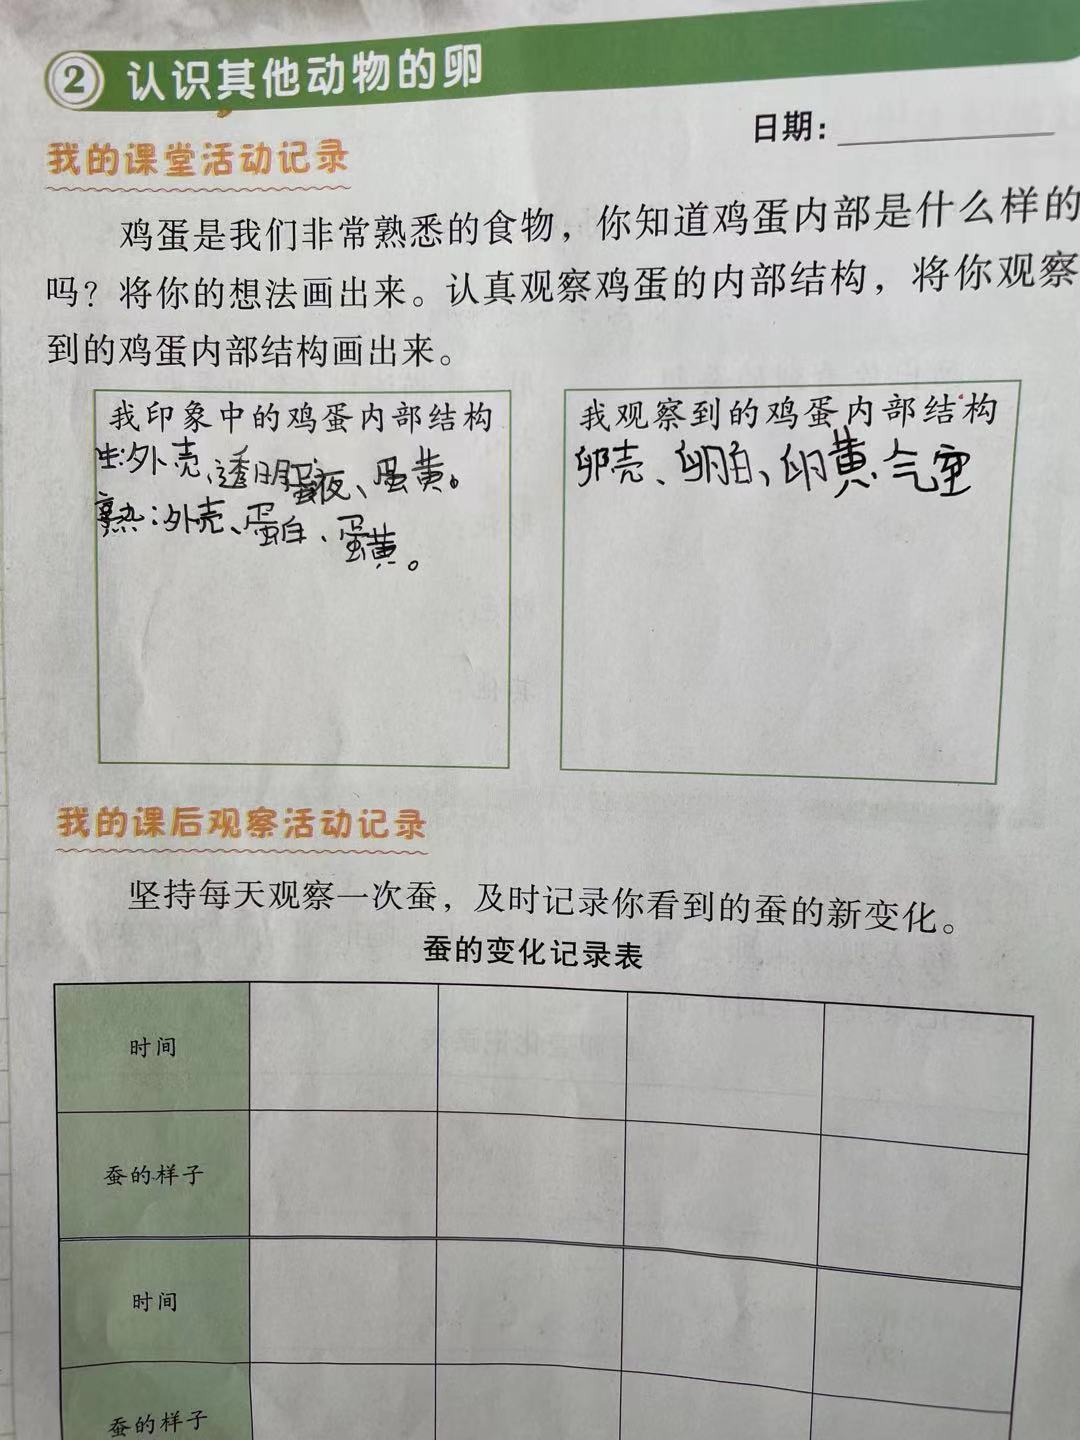 2 认识其他动物的卵
日期：
我的课堂活动记录
鸡蛋是我们非常熟悉的食物，你知道鸡蛋内部是什么样的
吗？将你的想法画出来。认真观察鸡蛋的内部结构，将你观察
到的鸡蛋内部结构画出来。
我印象中的鸡蛋内部结构
生:外壳、透明蛋液、蛋黄。
熟:外壳、蛋白、蛋黄。
我观察到的鸡蛋内部结构
卵壳、卵白、卵黄、气室
我的课后观察活动记录
坚持每天观察一次蚕，及时记录你看到的蚕的新变化。
蚕的变化记录表
时间
蚕的样子
时间
蚕的样子